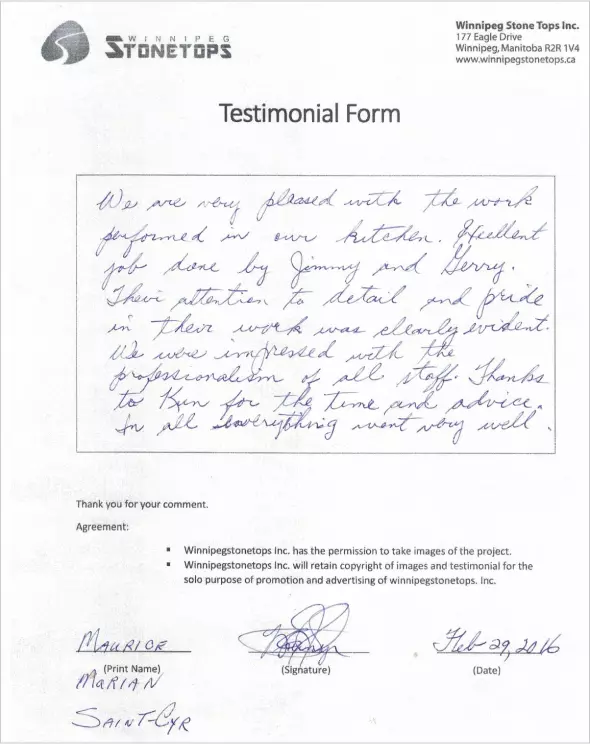 WINNIPEG
STONETOPS
Winnipeg Stone Tops Inc.
177 Eagle Drive
Winnipeg, Manitoba R2R 1V4
www.winnipegstonetops.ca
Testimonial Form
We are very pleased with the work
performed in our kitchen. Excellent
job done by Jimmy and Gerry.
Their attention to detail and pride
in their work was clearly evident.
We were impressed with the
professionalism of all staff. Thanks
to Kun for the time and advice.
In all everything went very well.
Thank you for your comment.
Agreement:
▪ Winnipegstonetops Inc. has the permission to take images of the project.
▪ Winnipegstonetops Inc. will retain copyright of images and testimonial for the
solo purpose of promotion and advertising of winnipegstonetops. Inc.
MAURICE Feb 29, 2016
(Print Name) (Signature) (Date)
MARIAN
SAINT-CYR